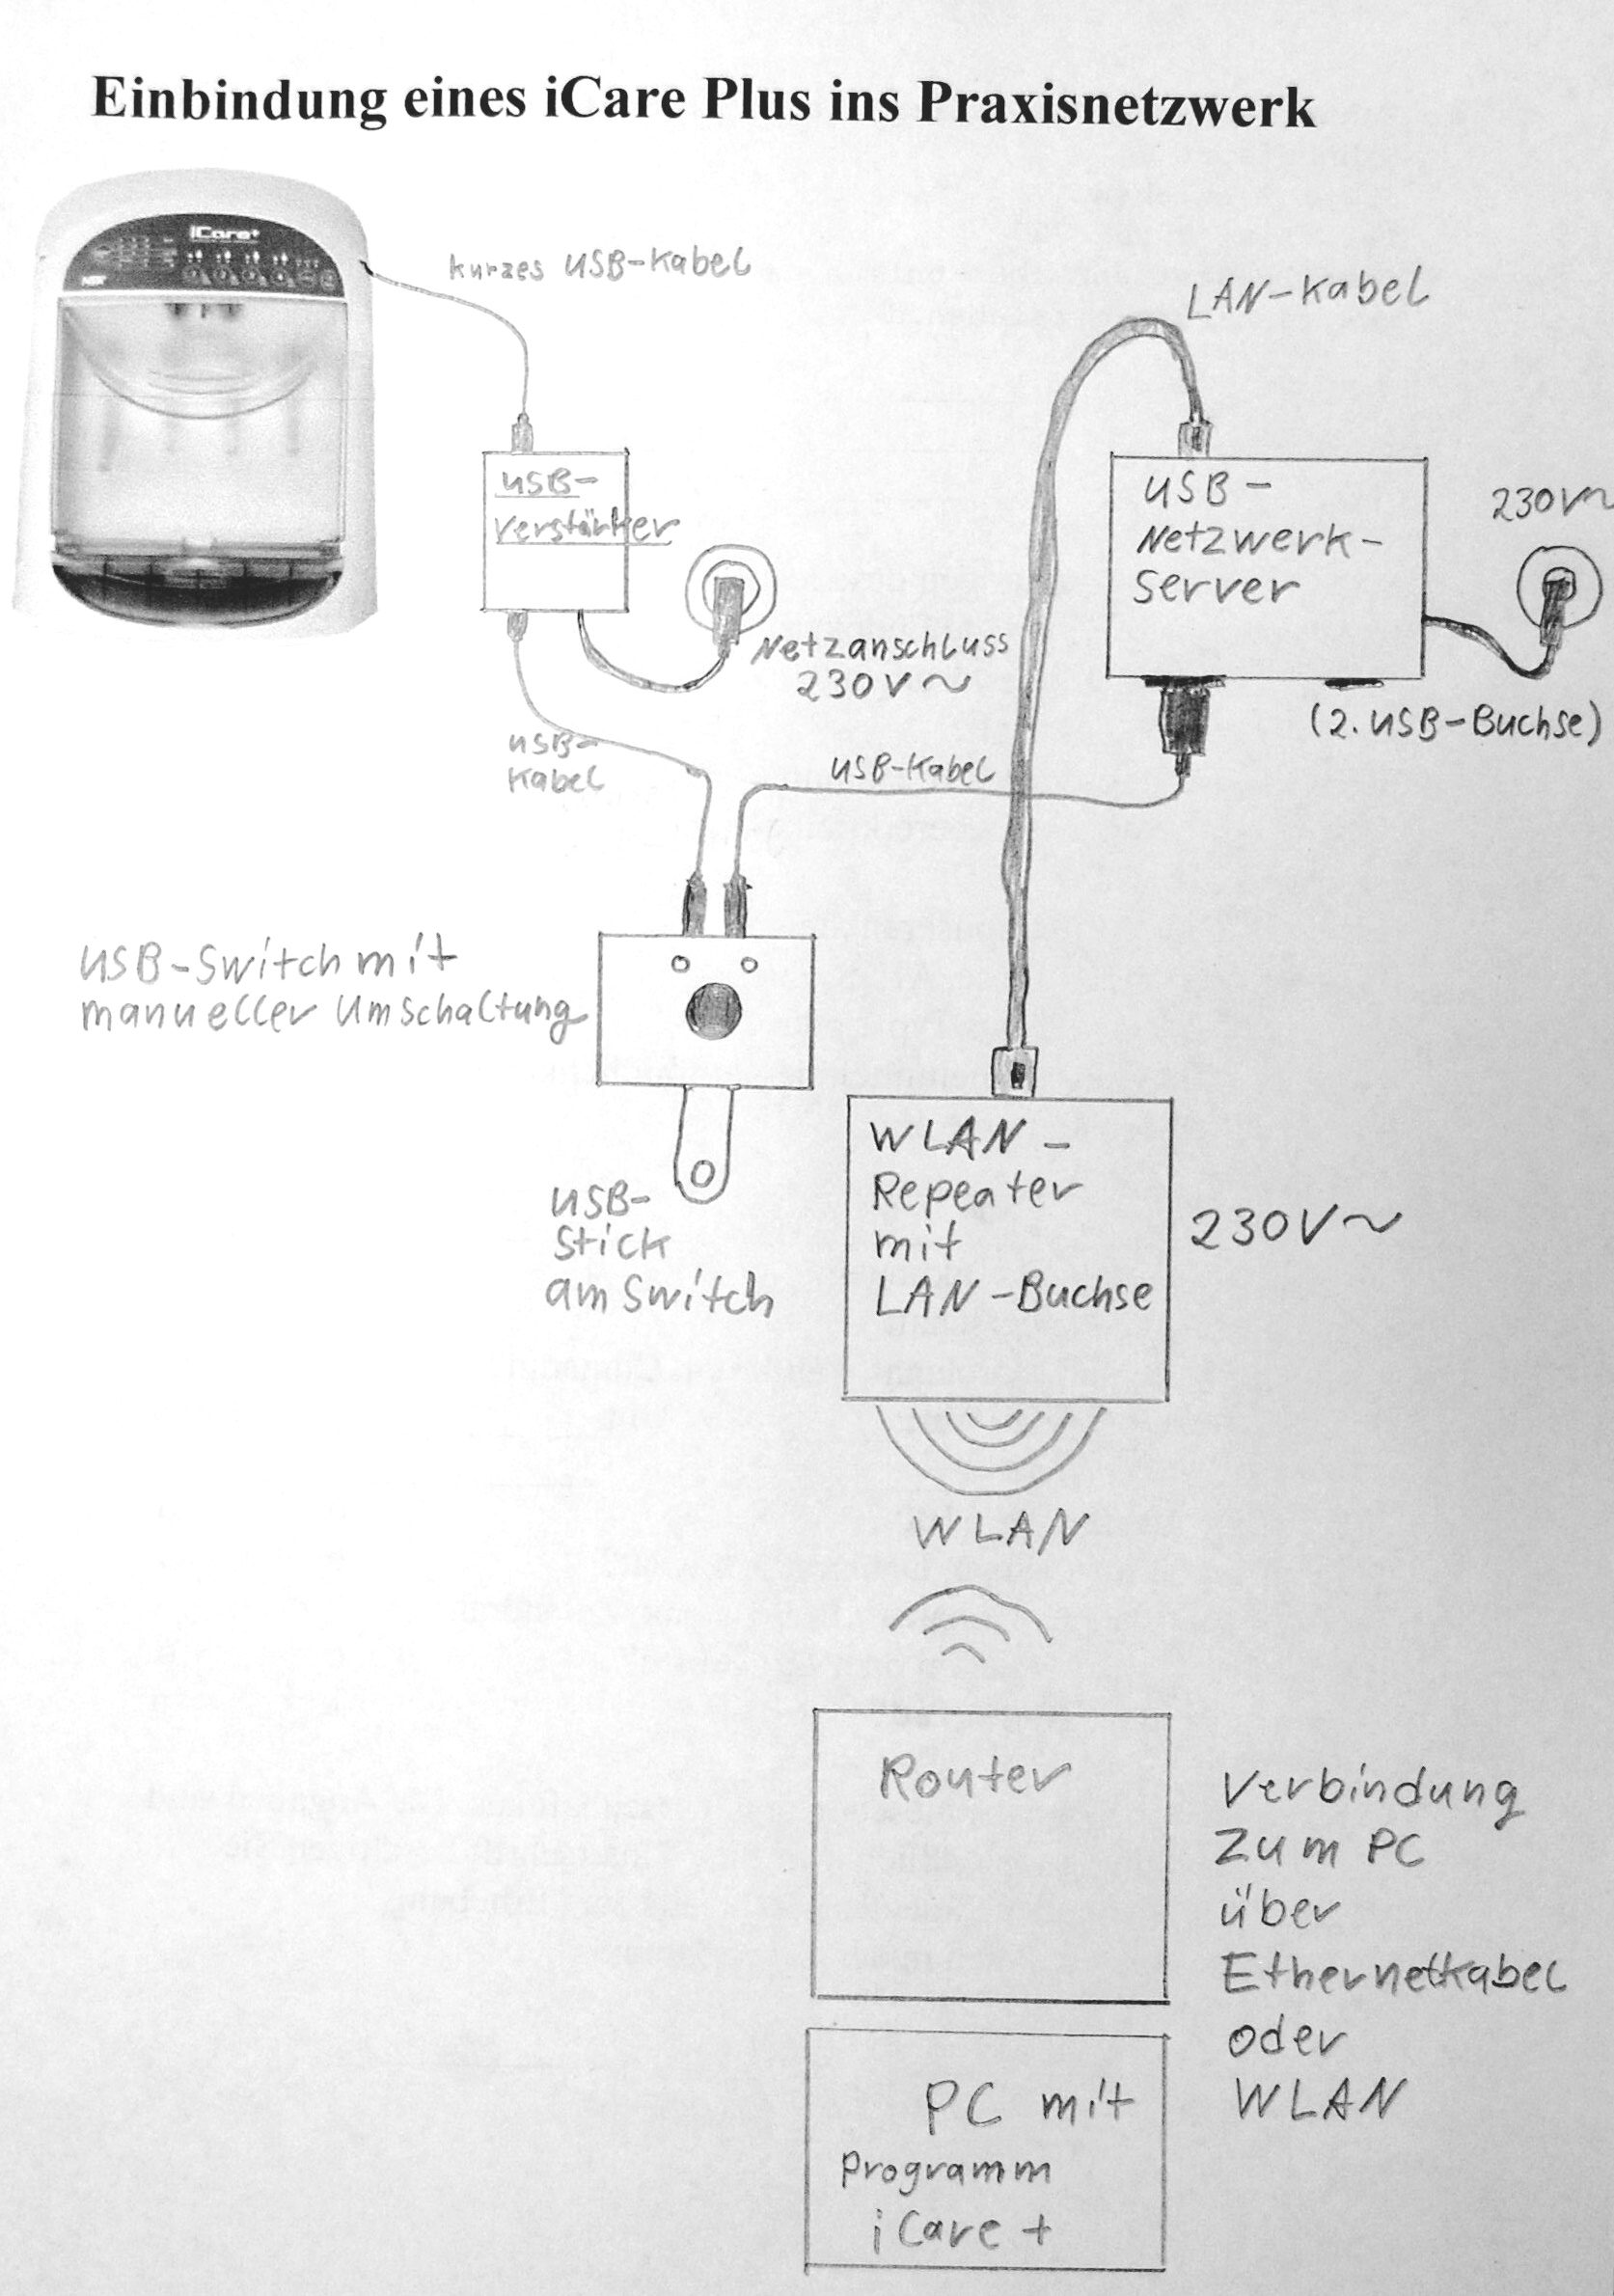 Einbindung eines iCare Plus ins Praxisnetzwerk
iCare+
NSK
kurzes USB-Kabel
LAN-Kabel
USB-
verstärker
USB-
Netzwerk-
Server
230V~
Netzanschluss
230V~
(2. USB-Buchse)
USB-
Kabel
USB-Kabel
USB-Switch mit
manueller Umschaltung
WLAN-
Repeater
mit
LAN-Buchse
230V~
USB-
Stick
am Switch
WLAN
Router
Verbindung
zum PC
über
Ethernetkabel
oder
WLAN
PC mit
Programm
iCare+